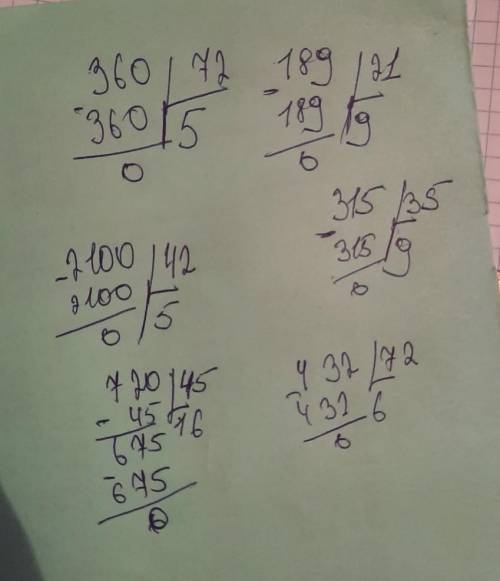 360 | 72
-360 | 5
0
-189 | 21
189 | 9
0
315 | 35
-315 | 9
0
-2100 | 42
2100 | 5
0
720 | 45
-45 | 16
675
-675
0
432 | 72
-432 6
0